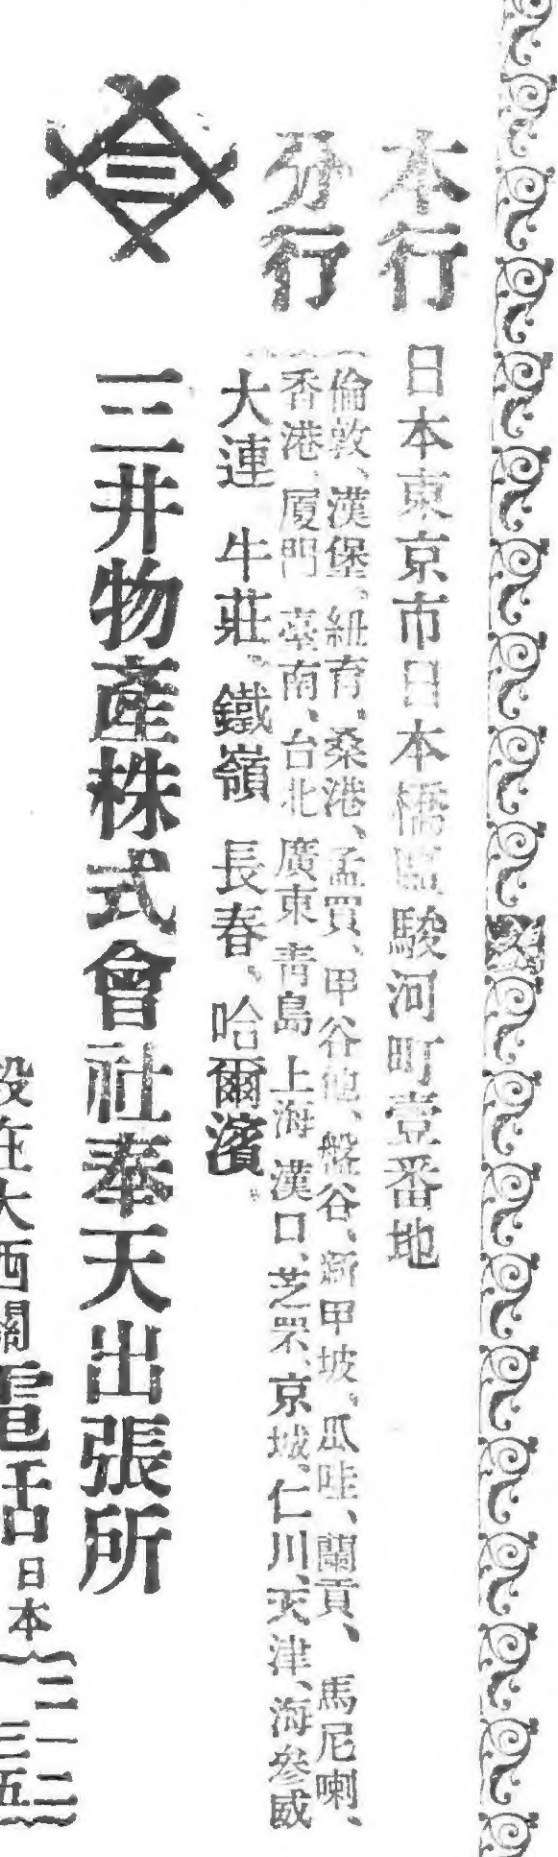 本行 日本東京市日本橋區駿河町壹番地
分行 倫敦、漢堡、紐育、桑港、孟買、甲谷他、盤谷、新甲坡、瓜哇、蘭貢、馬尼喇、
香港、厦門 臺南、台北 廣東 青島 上海 漢口、芝罘、京城、仁川、天津、海參威
大連 牛莊、鐵嶺 長春、哈爾濱。
三井物產株式會社奉天出張所
設在大西關 電話 日本 二一二 三五